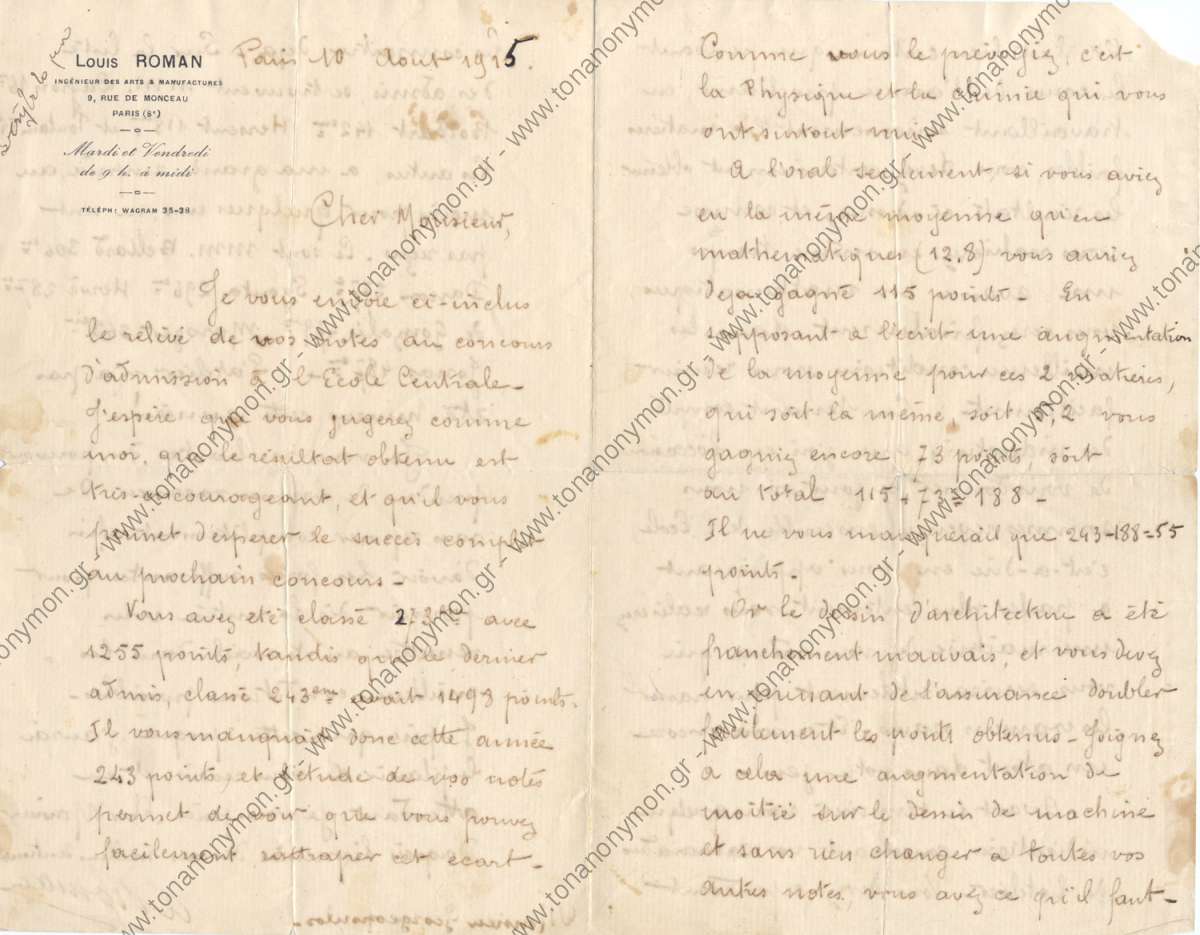 Louis ROMAN
INGÉNIEUR DES ARTS & MANUFACTURES
9, RUE DE MONCEAU
PARIS (8e)
Mardi et Vendredi
de 9 h. à midi
TÉLÉPH: WAGRAM 35-38
Paris 10 Aout 1915.
Cher Monsieur,
Je vous envoie ci-inclus
le rélévé de vos notes au concours
d'admission à l'Ecole Centrale-
J'espère que vous jugerez comme
moi, que le résultat obtenu est
très-encourageant, et qu'il vous
permet d'espérer le succès complet
au prochain concours-
Vous avez été classé avec
1255 points, tandis que le dernier
admis, classé 243eme avait 1498 points.
Il vous manquait donc cette année
243 points, et l'étude de vos notes
permet de voir que vous pouvez
facilement rattraper cet écart-
Comme vous le prévoyiez, c'est
la Physique et la chimie qui vous
ont surtout nui.
A l'oral seulement, si vous aviez
eu la même moyenne qu'en
mathématiques (12,8) vous auriez
deja gagné 115 points- En
supposant a l'écrit une augmentation
de la moyenne pour ces 2 matières,
qui soit la même, soit vous
gagniez encore 73 points, soit
au total 115+73=188-
Il ne vous manquerait que 243-188=55
points-
Or le dessin d'architecture a été
franchement mauvais, et vous devez
en de l'assurance doubler
facilement les points obtenus- Joignez
a cela une augmentation de
moitié sur le dessin de machine
et sans rien changer a toutes vos
autres notes, vous avez ce qu'il faut-
www.tonanonymon.gr